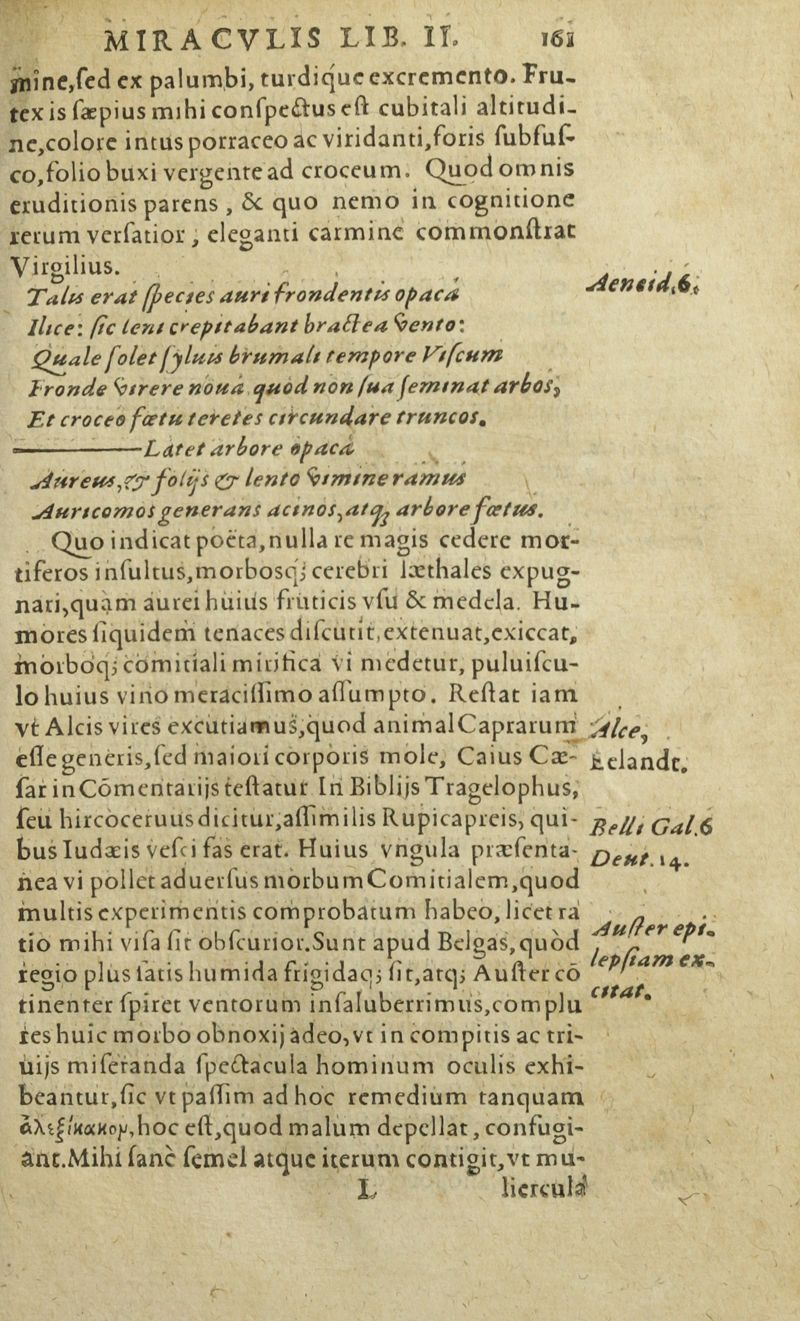 MIRACVLIS LIB. II. 161
mine,ſed ex palumbi, turdique excremento. Fru-
tex is ſæpius mihi conſpectus eſt cubitali altitudi-
ne,colore intus porraceo ac viridanti,foris ſubfuſ-
co,folio buxi vergente ad croceum. Quod omnis
eruditionis parens, & quo nemo in cognitione
rerum verſatior, eleganti carmine commonſtrat
Virgilius.
Talis erat ſpecies auri frondentis opaca
Aeneid.6.
Ilice: ſic leni crepitabant bractea vento:
Quale ſolet ſyluis brumali tempore Viſcum
Fronde virere nouá quod non ſua ſeminat arbos,
Et croceo fœtu teretes circundare truncos.
—Latet arbore opacá
Aureus,& folijs & lento vimine ramus
Auricomos generans acinos,atq; arbore fœtus.
Quo indicat poëta,nulla re magis cedere mor-
tiferos inſultus,morbosq; cerebri læthales expug-
nari,quàm aurei huius fruticis vſu & medela. Hu-
mores ſiquidem tenaces diſcutit,extenuat,exiccat,
morboq; comitiali mirifica vi medetur, puluiſcu-
lo huius vino meraciſſimo aſſumpto. Reſtat iam
vt Alcis vires excutiamus,quod animal Caprarum
Alce,
eſſe generis,ſed maiori corporis mole, Caius Cæ-
Eelandt.
ſar in Cõmentarijs teſtatur In Biblijs Tragelophus,
ſeu hircoceruus dicitur,aſſimilis Rupicapreis, qui-
Belli Gal.6
bus Iudæis veſci fas erat. Huius vngula præſenta-
Deut.14.
nea vi pollet aduerſus morbum Comitialem,quod
multis experimentis comprobatum habeo, licet ra
tio mihi viſa ſit obſcurior.Sunt apud Belgas, quòd
Auſter epi-
regio plus ſatis humida frigidaq; ſit,atq; Auſter cō
lepſiam ex-
tinenter ſpiret ventorum inſaluberrimus,complu
citat.
res huic morbo obnoxij adeo,vt in compitis ac tri-
uijs miſeranda ſpectacula hominum oculis exhi-
beantur,ſic vt paſſim ad hoc remedium tanquam
ἀλεξίκακον,hoc eſt,quod malum depellat, confugi-
ant.Mihi ſanè ſemel atque iterum contigit,vt mu-
L liercula